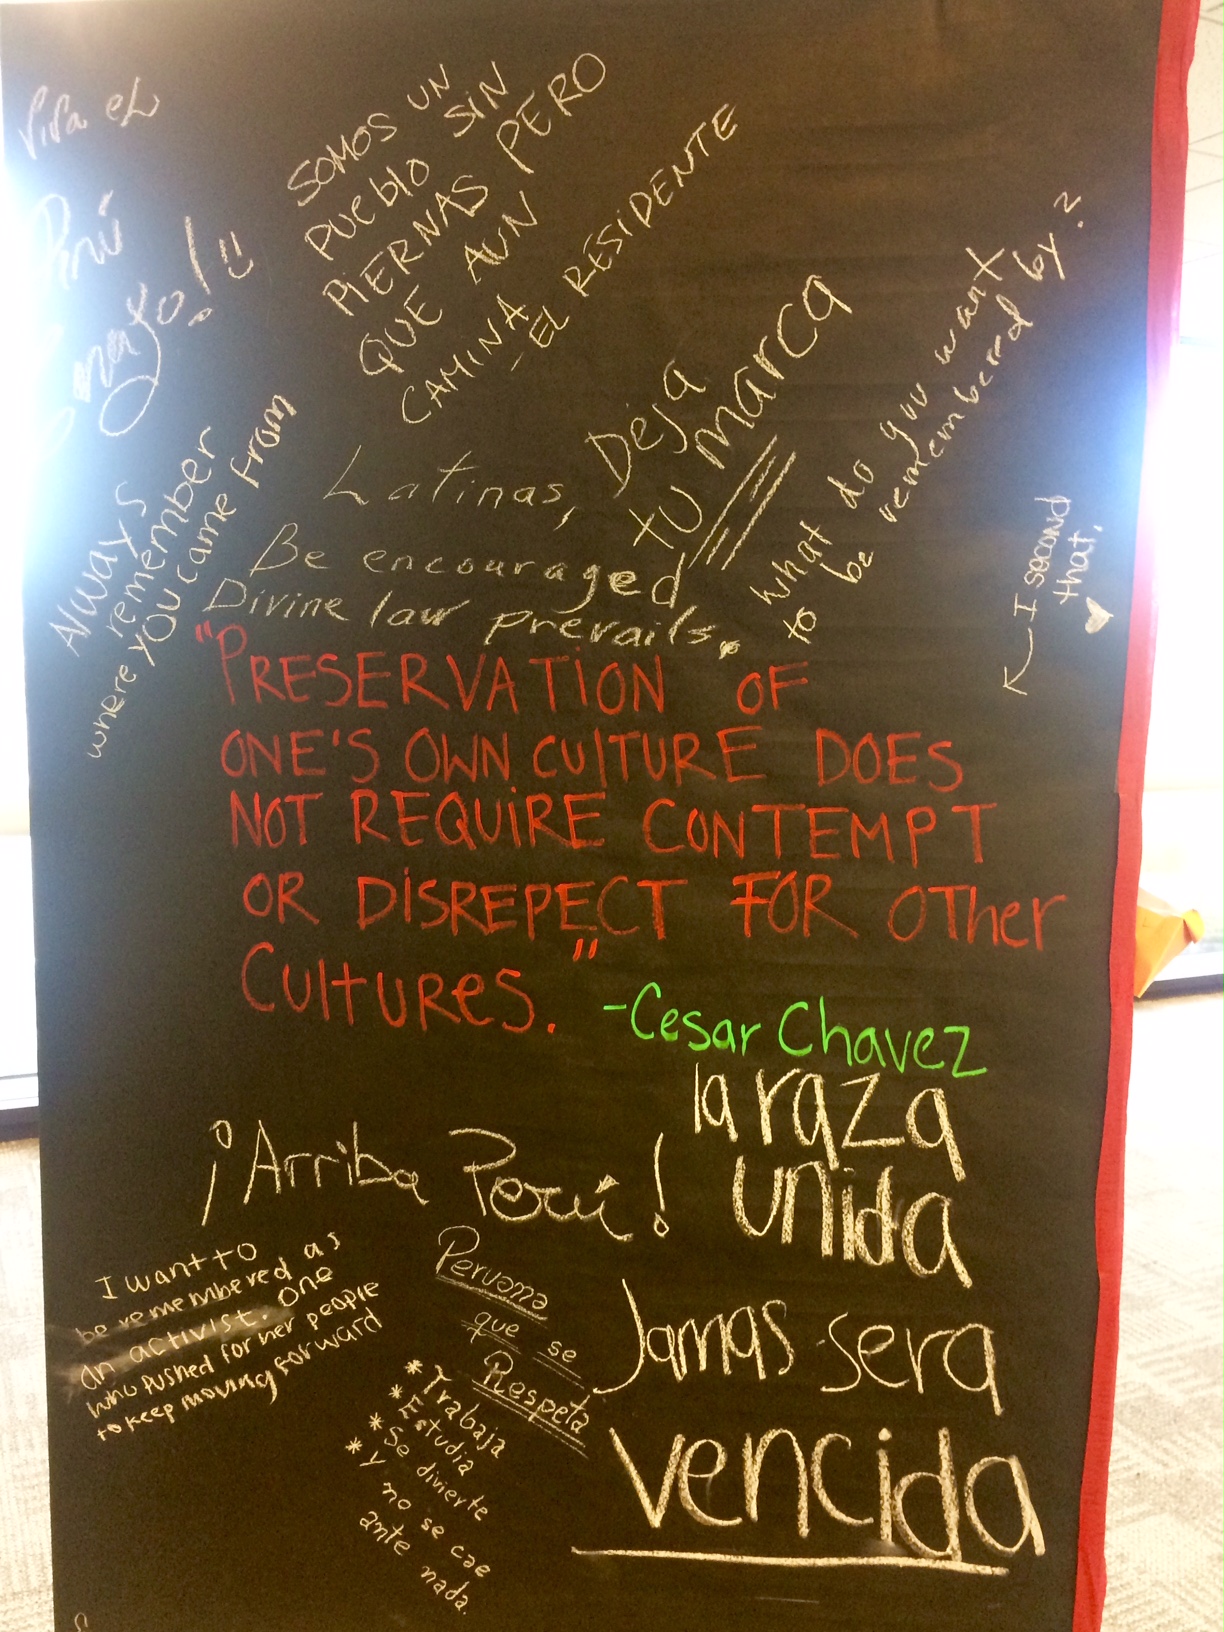 Viva el
Perú
Carajo! :)
SOMOS UN
PUEblO SIN
PIERNAS PERO
QUE AUN
CAMINA
-EL RESIDENTE
Deja
tu marca
What do you want
to be remembered by?
← I second
that. ♥
Always
remember
where you came from
Latinas,
Be encouraged
Divine law prevails.
"PRESERVATION OF
ONE'S OWN CUlTURE DOES
NOT REQUiRE CONTEMPT
OR DiSREPECT FOR OTher
CUltUREs."
-Cesar Chavez
la raza
unida
Jamas sera
vencida
¡Arriba Perú!
I want to
be remembered as
an activist. One
who pushed for her people
to keep moving forward
Peruana
que se
Respeta
* Trabaja
* Estudia
* Se divierte
* Y no se cae
ante nada.